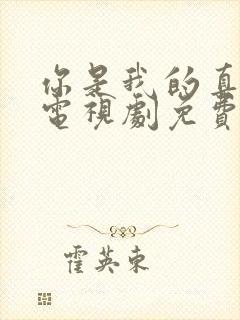 你是我的真
電視劇免費
霍英東